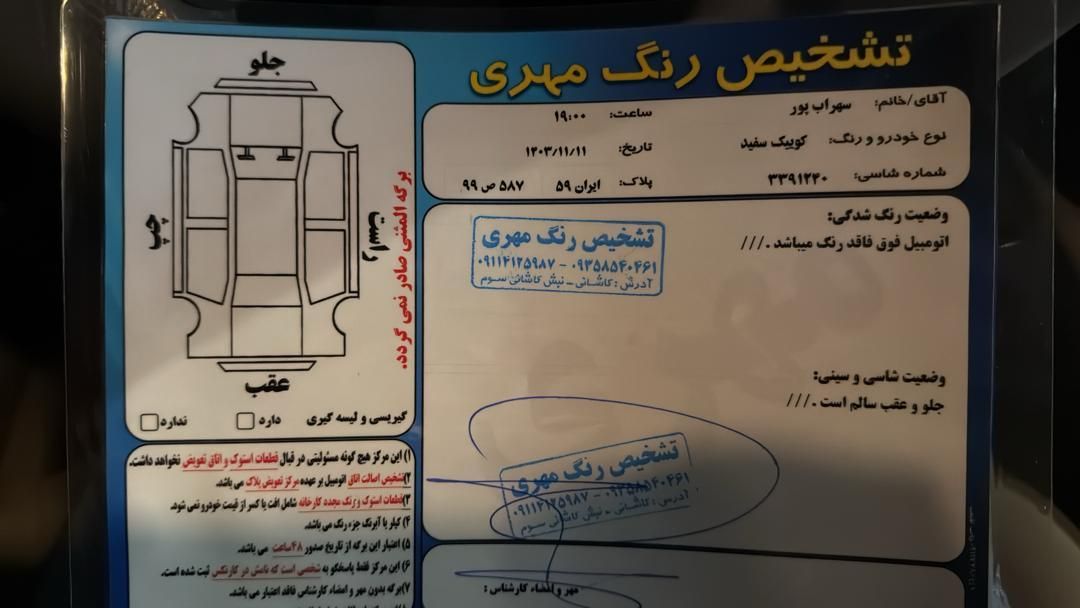 تشخیص رنگ مهری
آقای/خانم: سهراب پور
ساعت: ۱۹:۰۰
نوع خودرو و رنگ: کوییک سفید
تاریخ: ۱۴۰۳/۱۱/۱۱
شماره شاسی: ۳۳۹۱۲۴۰
پلاک: ایران ۵۹ ۵۸۷ ص ۹۹
وضعیت رنگ شدگی:
اتومبیل فوق فاقد رنگ میباشد .///
تشخیص رنگ مهری
۰۹۳۵۸۵۴۰۴۶۱ - ۰۹۱۱۴۱۲۵۹۸۷
آدرش : کاشانی - نبش کاشانی سوم
وضعیت شاسی و سینی:
جلو و عقب سالم است .///
تشخیص رنگ مهری
۰۹۳۵۸۵۴۰۴۶۱ - ۰۹۱۱۴۱۲۵۹۸۷
آدرس : کاشانی - نبش کاشانی سوم
مهر و امضاء کارشناس :
جلو
چپ
راست
عقب
برگه المثنی صادر نمی گردد.
گیریسی و لیسه گیری دارد ندارد
۱) این مرکز هیچ گونه مسئولیتی در قبال قطعات استوک و اتاق تعویض نخواهد داشت.
۲) تشخیص اصالت اتاق اتومبیل بر عهده مرکز تعویض پلاک می باشد.
۳) قطعات استوک و رنگ مجدد کارخانه شامل افت یا کسر از قیمت خودرو نمی شود.
۴) کیلر یا آبرنگ جزء رنگ می باشد.
۵) اعتبار این برگه از تاریخ صدور ۴۸ ساعت می باشد.
۶) این مرکز فقط پاسخگو به شخصی است که نامش در کارتکس ثبت شده است.
۷) برگه بدون مهر و امضاء کارشناس فاقد اعتبار می باشد.